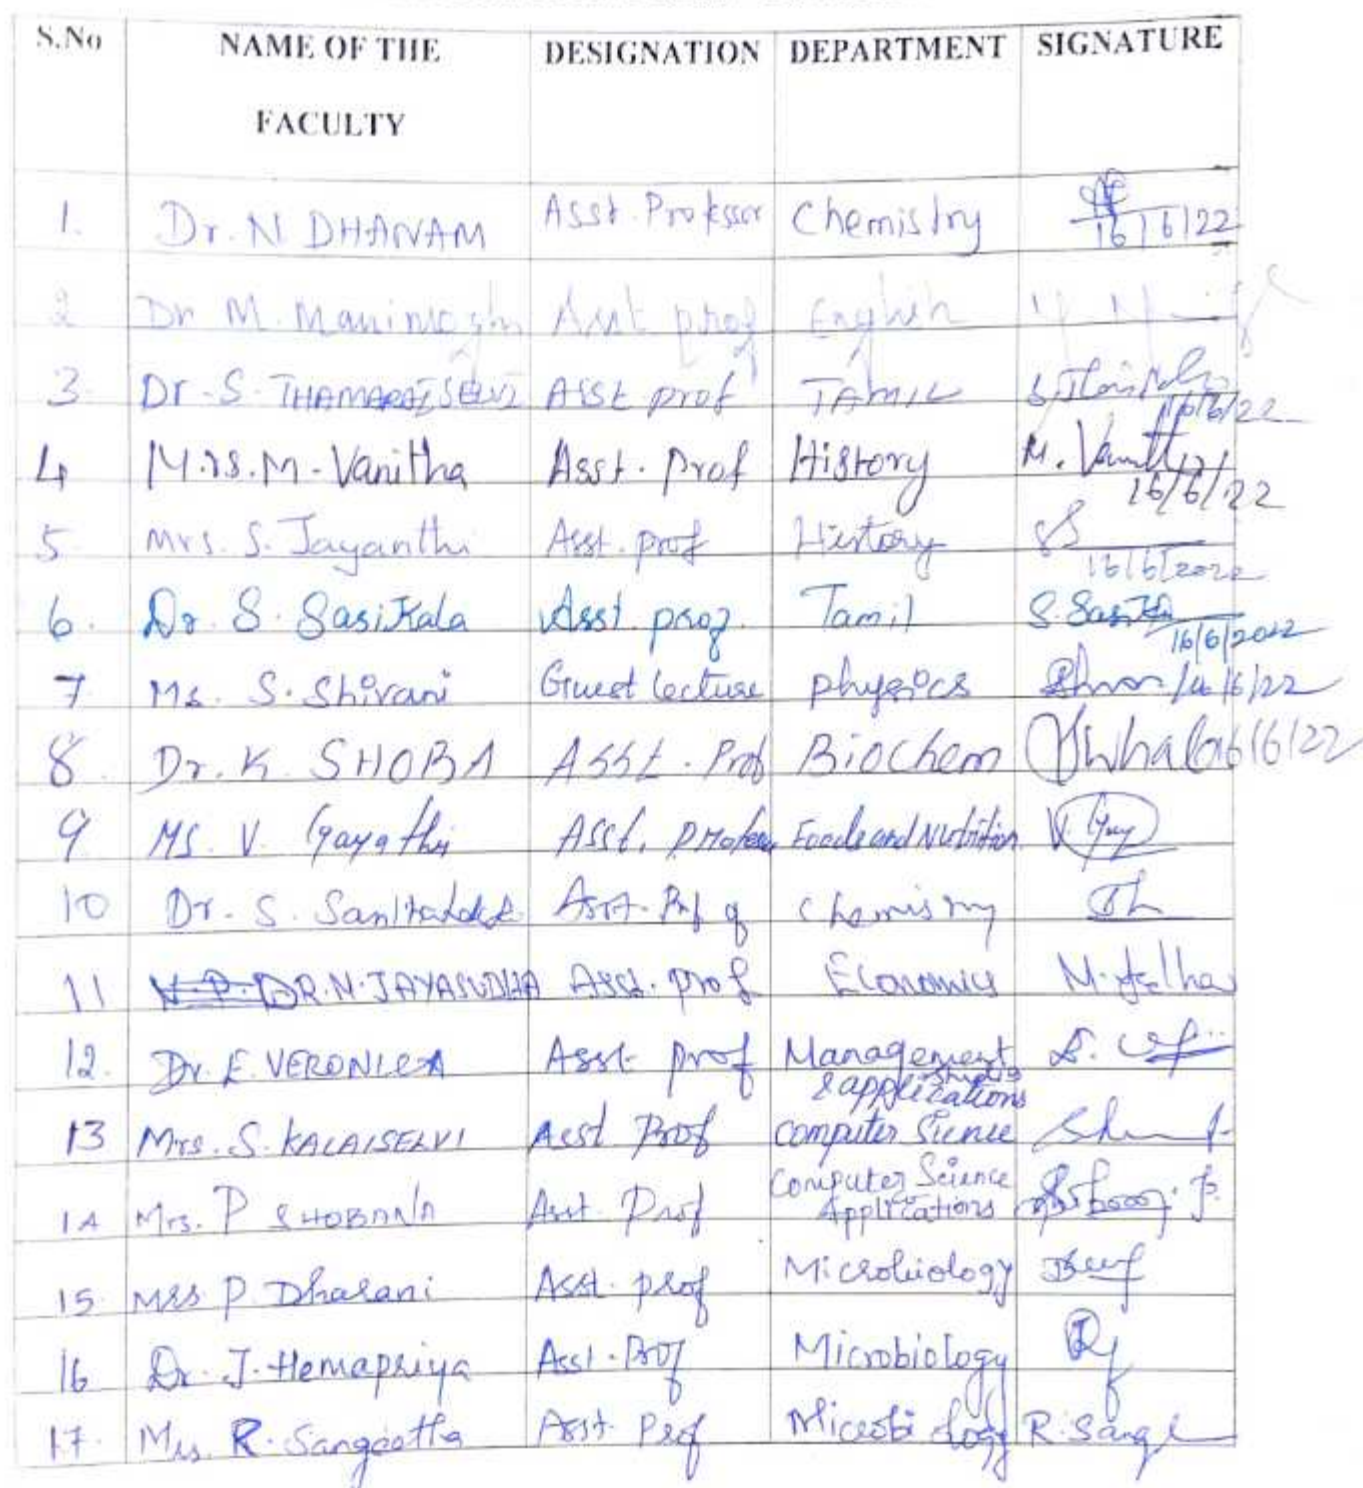 S.No NAME OF THE FACULTY DESIGNATION DEPARTMENT SIGNATURE
1. Dr. N DHANAM Asst. Professor Chemistry 16/6/22
2 Dr M. Manimoghi Asst prof English
3. Dr. S. THAMARAISELVI Asst prof TAMIL 16/6/22
4 Mrs. M. Vanitha Asst. Prof History M. Vanitha 16/6/22
5 Mrs. S. Jayanthi Asst. prof History 16/6/2022
6. Dr. S. Sasikala Asst. prof. Tamil S. Sasikala 16/6/2022
7 Ms. S. Shivani Guest lecture physics 16/6/22
8. Dr. K. SHOBA Asst. Prof Biochem 16/6/22
9 Ms. V. Gayathri Asst. Professor Foods and Nutrition V.
10 Dr. S. Asst. Prof chemistry
11 DR. N. JAYASUDHA Asst. prof Economics
12. Dr. E. VERONICA Asst. prof Management studies & applications
13 Mrs. S. KALAISELVI Asst Prof Computer Science
14 Mrs. P SHOBANA Asst. Prof Computer Science Applications
15. Mrs P. Dharani Asst. prof Microbiology
16 Dr. J. Hemapriya Asst. Prof Microbiology
17. Mrs R. Sangeetha Asst. Prof Microbiology R. Sange